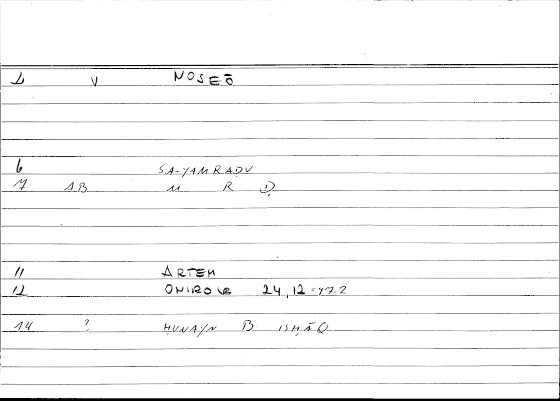 1 V NOSEŌ
6 SA-YAMRADU
7 AB M R Ḍ
11 ARTEM
12 ONIROKR 24,12-47.2
14 ? ḤUNAYN B ISḤĀQ